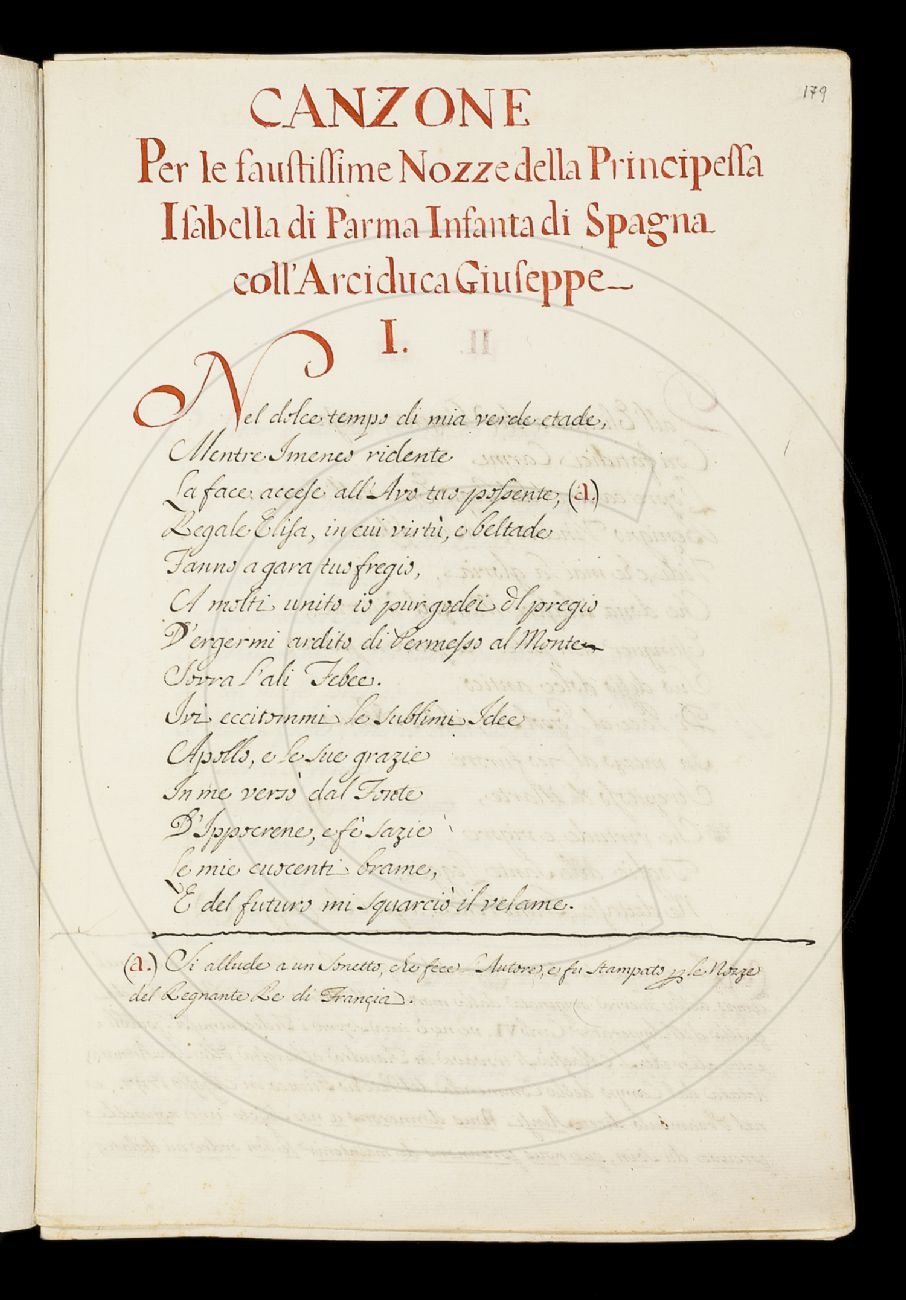 179
CANZONE
Per le faustissime Nozze della Principessa
Isabella di Parma Infanta di Spagna
coll'Arciduca Giuseppe
I.
Nel dolce tempo di mia verde etade,
Mentre Imeneo ridente
La face accese all'Avo tuo possente, (a.)
Regale Elisa, in cui virtù, e beltade
Fanno a gara tuo fregio,
A molti unito io pur godei il pregio
D'ergermi ardito di Permesso al Monte
Sovra l'ali Febee.
Ivi eccitommi le sublimi Idee
Apollo, e le sue grazie
In me versò dal Fonte
D'Ippocrene, e fè sazie
Le mie cuocenti brame,
E del futuro mi squarciò il velame.
(a.) Si allude a un Sonetto, che fece l'Autore, e fu stampato p le Nozze
del Regnante Re di Francia.